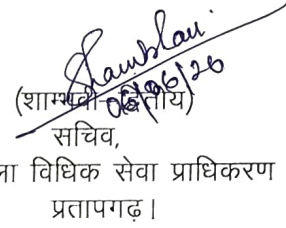 Shambhavi
06/06/26
(शाम्भवी द्वितीय)
सचिव,
ला विधिक सेवा प्राधिकरण
प्रतापगढ़।